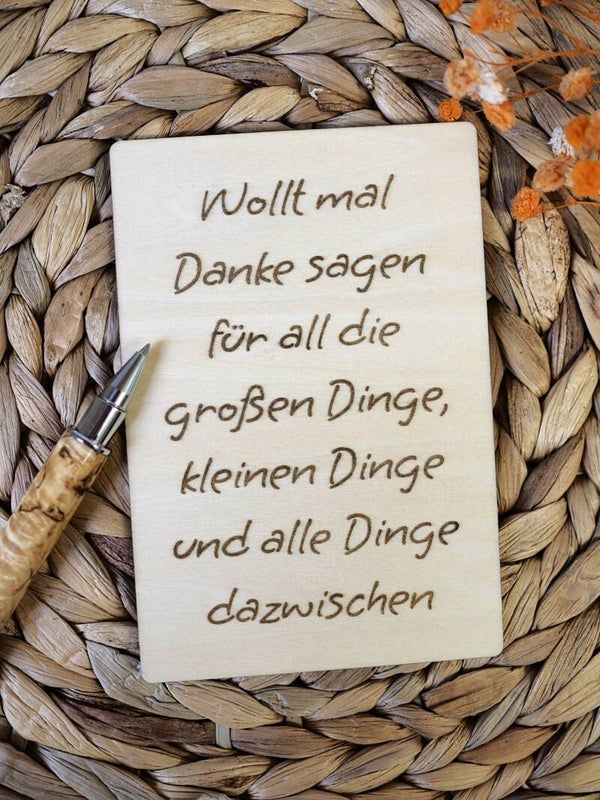 Wollt mal
Danke sagen
für all die
großen Dinge,
kleinen Dinge
und alle Dinge
dazwischen